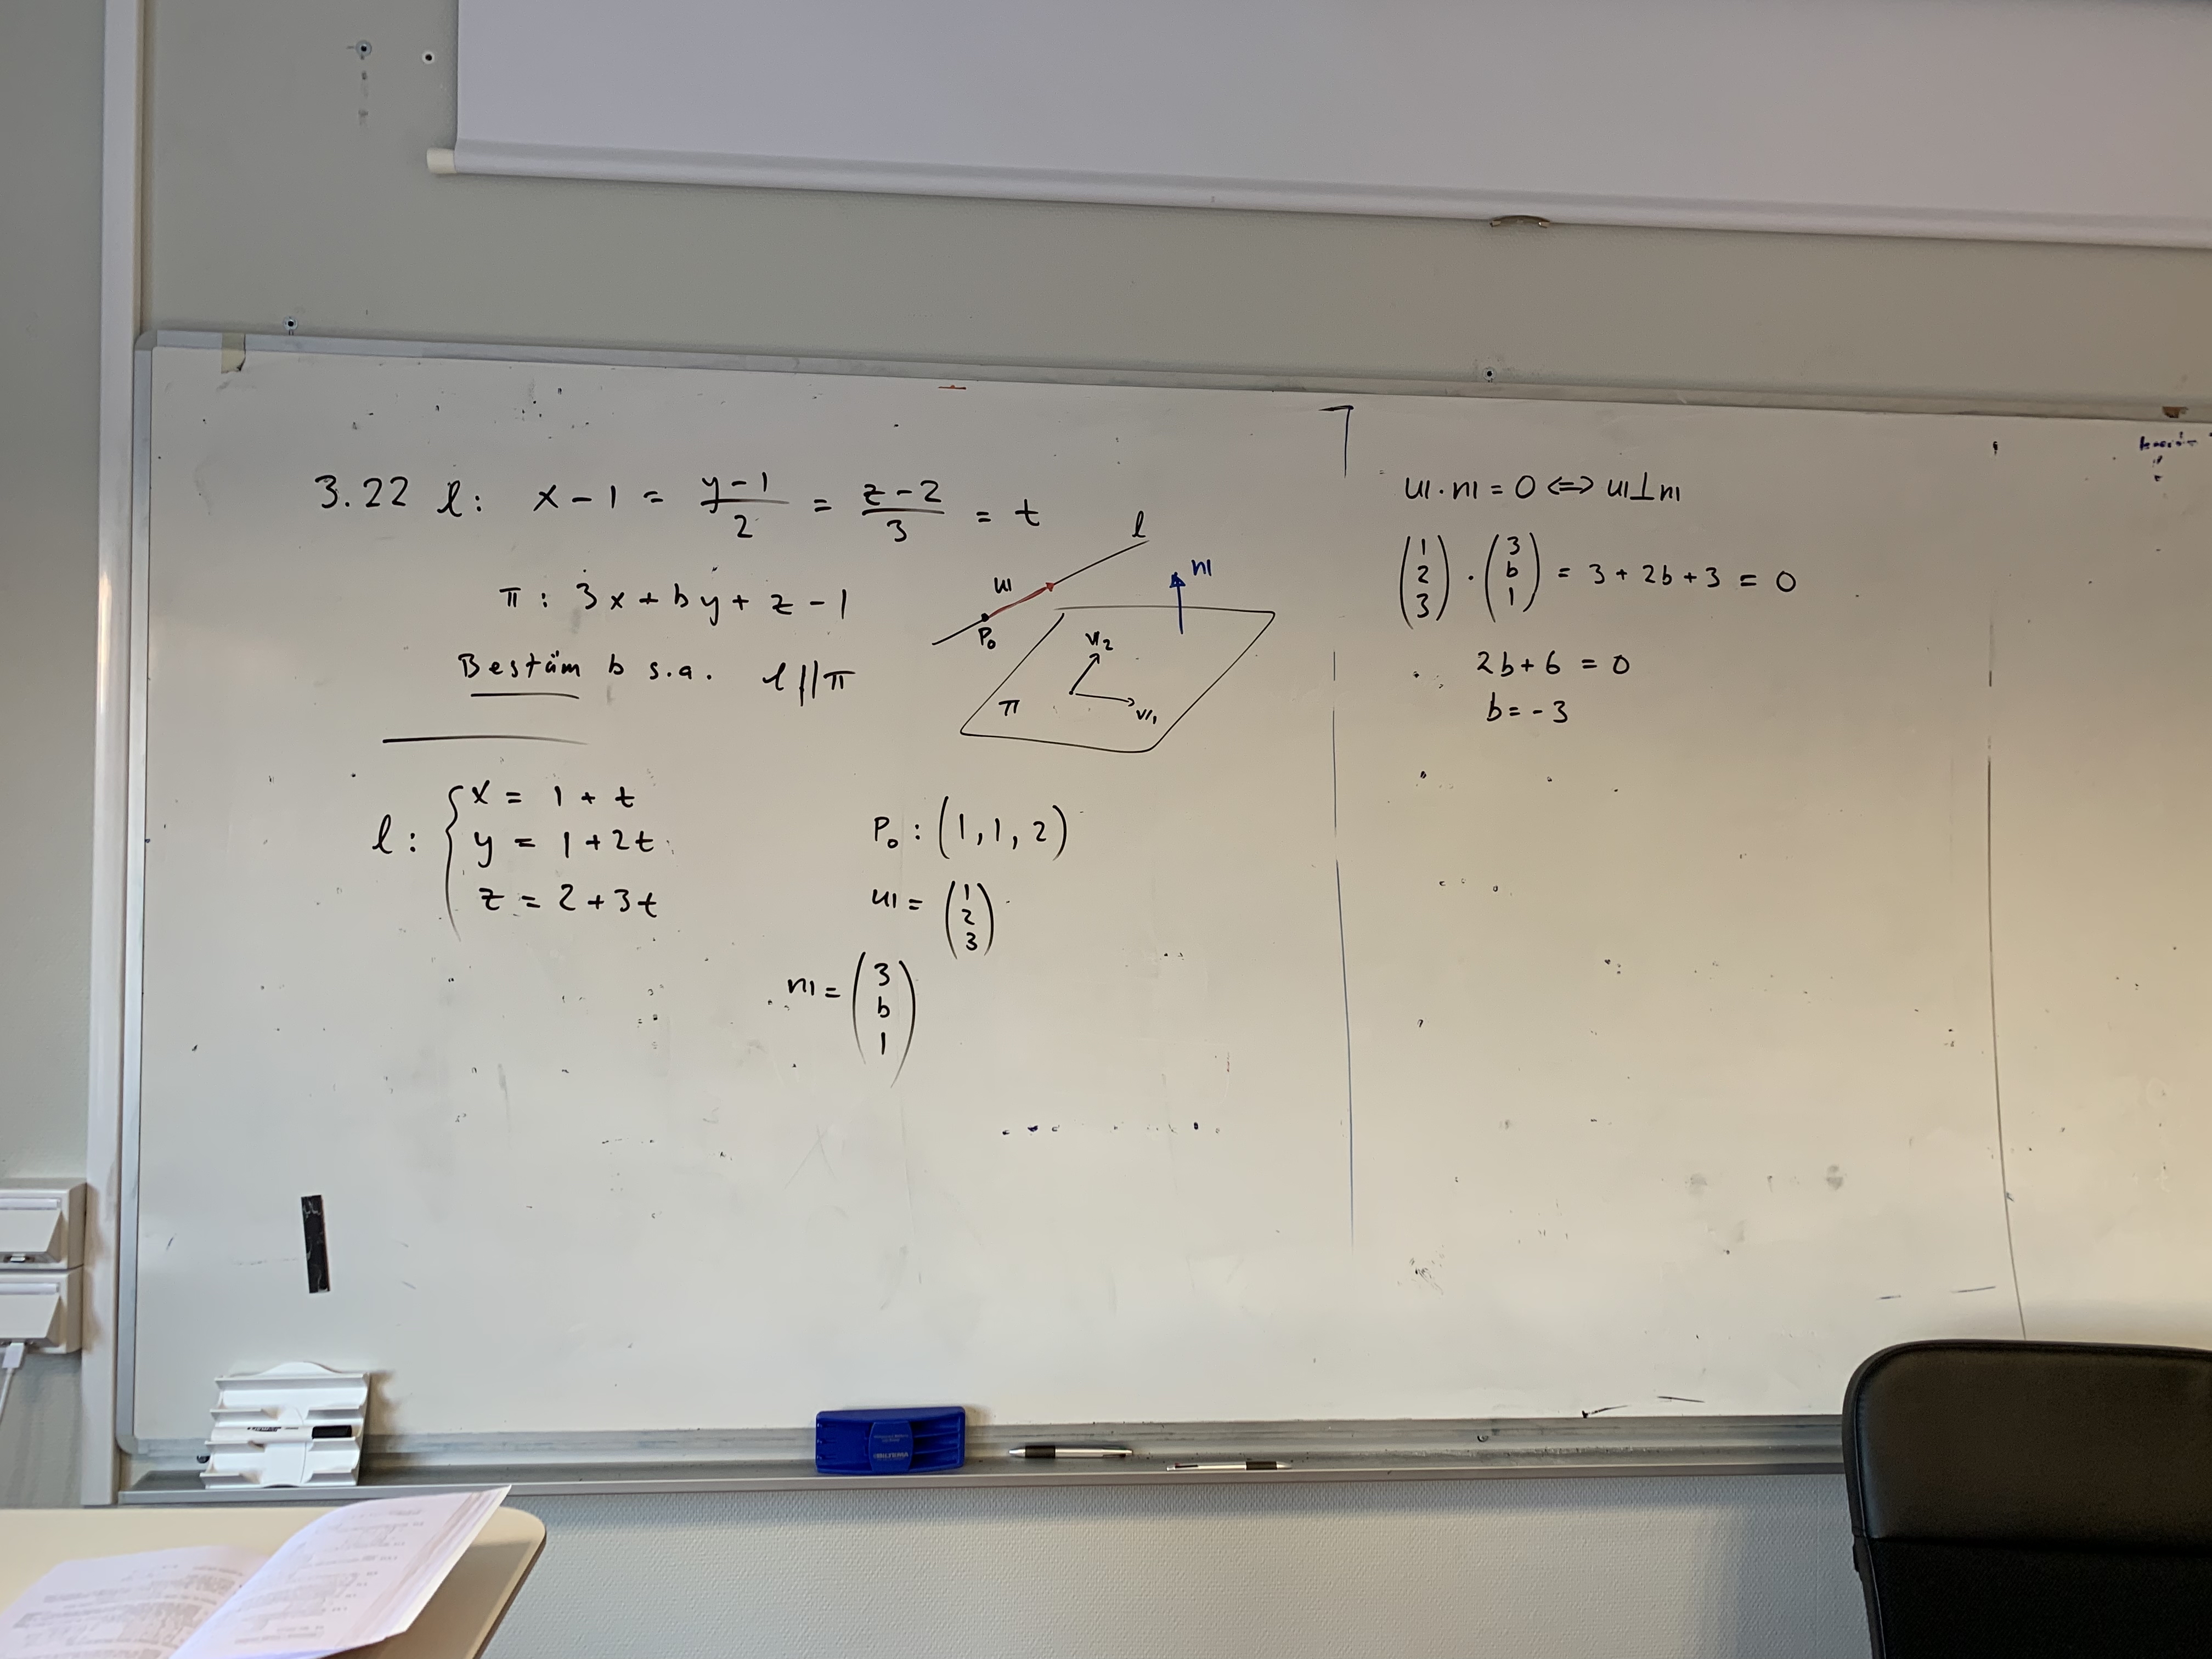 3.22 l: x-1 = (y-1)/2 = (z-2)/3 = t
π: 3x+by+z-1
Bestäm b s.a. l//π
l
u
P₀
n
v₂
v₁
π
l: { x = 1+t
y = 1+2t
z = 2+3t
P₀: (1, 1, 2)
u = (1 2 3)
n = (3 b 1)
u·n = 0 ⇔ u⊥n
(1 2 3) · (3 b 1) = 3+2b+3 = 0
2b+6 = 0
b = -3
BILTEMA